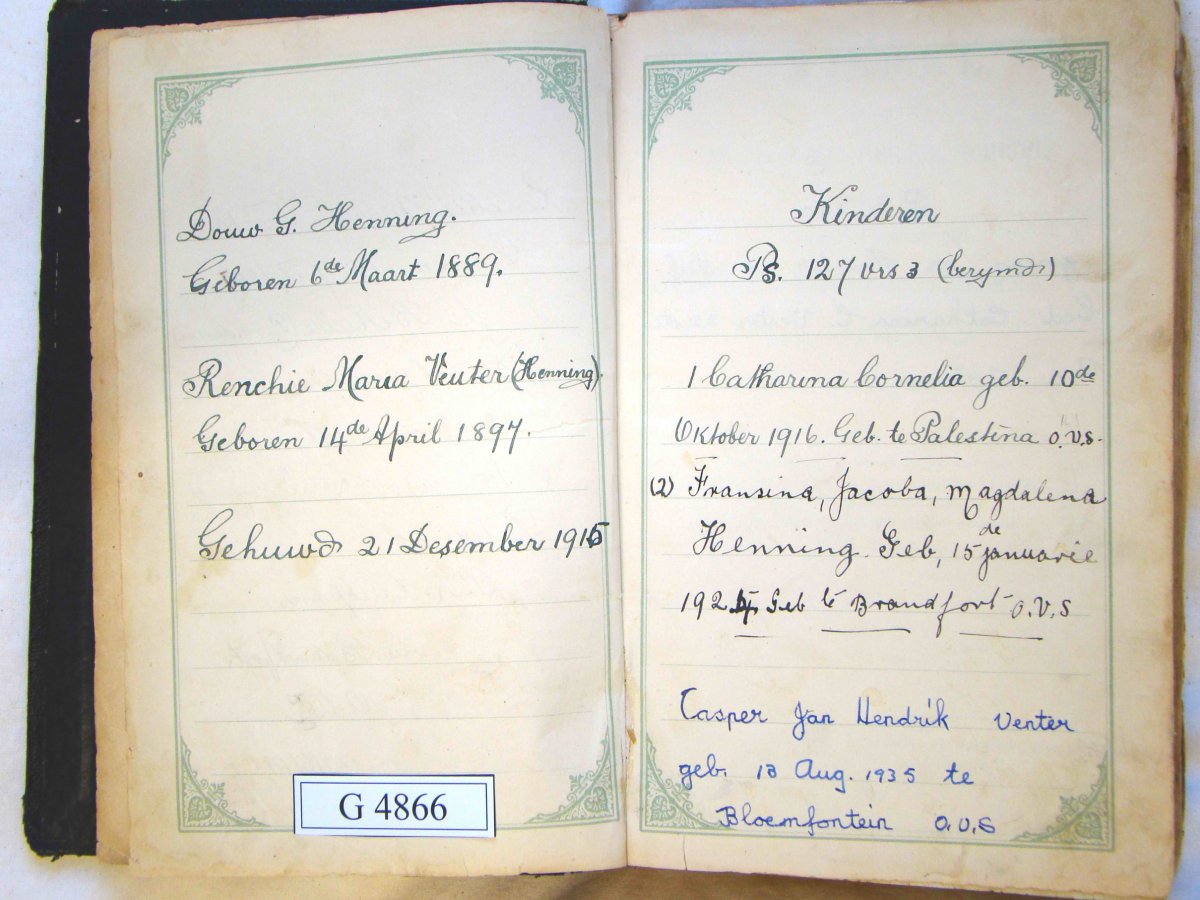 Douw G. Henning.
Geboren 6de Maart 1889.
Renchie Maria Venter (Henning).
Geboren 14de April 1897.
Gehuwd 21 Desember 1915
G 4866
Kinderen
Ps. 127 vrs 3 (berymd)
1 Catharina Cornelia geb. 10de
Oktober 1916. Geb. te Palestina O.V.S.
(2) Fransina, Jacoba, Magdalena
Henning. Geb, 15de januarie
192 Geb te Brandfort O.V.S
Casper Jan Hendrik Venter
geb. 13 Aug. 1935 te
Bloemfontein O.V.S